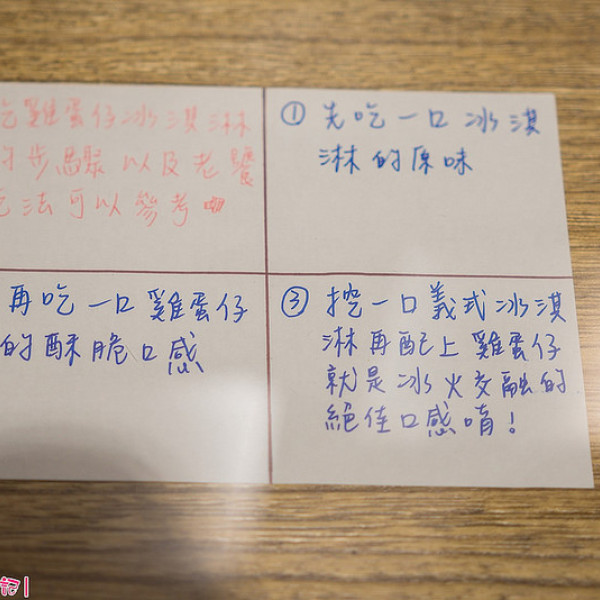 吃雞蛋仔冰淇淋
的步驟以及老饕
吃法可以參考
① 先吃一口冰淇
淋的原味
再吃一口雞蛋仔
的酥脆口感
③ 挖一口義式冰淇
淋再配上雞蛋仔
就是冰火交融的
絕佳口感唷！
記